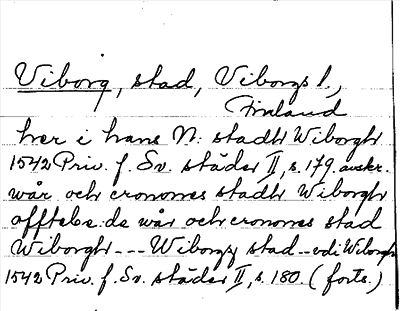 Viborg, stad, Viborgs l.,
Finland
her i hans N: stadh Wiborgh
1542 Priv. f. Sv. städer II, s. 179. avskr.
wår och cronones stadh Wiborgh
offtebe:de wår och cronones stad
Wiborgh --- Wiborgz stad -- vdi Wiborgh
1542 Priv. f. Sv. städer II, s. 180. (forts.)